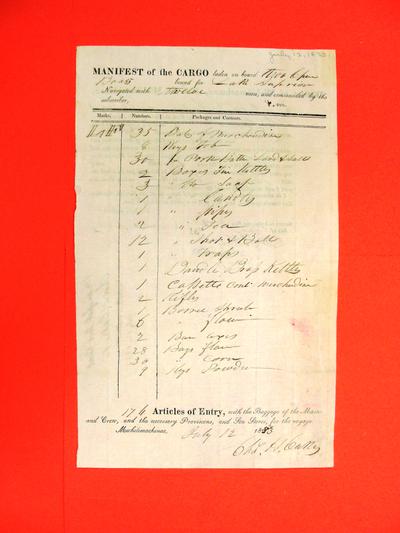 July 12, 1833
MANIFEST of the CARGO laden on board Two Open
Boats bound for Lake Superior
Navigated with Twelve men, and consumited by the
subscriber,
Marks, Numbers. Packages and Contents.
35 Bales Merchandise
Kegs
30
2 Boxes Tin Kettles
3 " Soap
1 " Candles
1 " Pipes
2 " Tea
12 " Shot & Balls
1 " Traps
1 Bundle Brass Kettles
1 Cassette Cont. Merchandise
2 Rifles
1
6 " flour
2
28 Bags flour
30 " Corn
9 Kegs Powder
176 Articles of Entry, with the Baggage of the Master
and Crew, and the necessary Provisions, and Sea Stores, for the voyage
Michilimackinac, July 12 1833